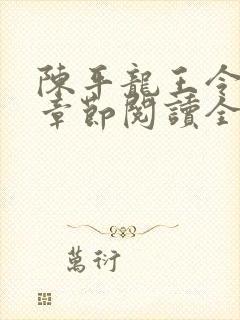 陳平龍王令
章節閱讀全
萬衍